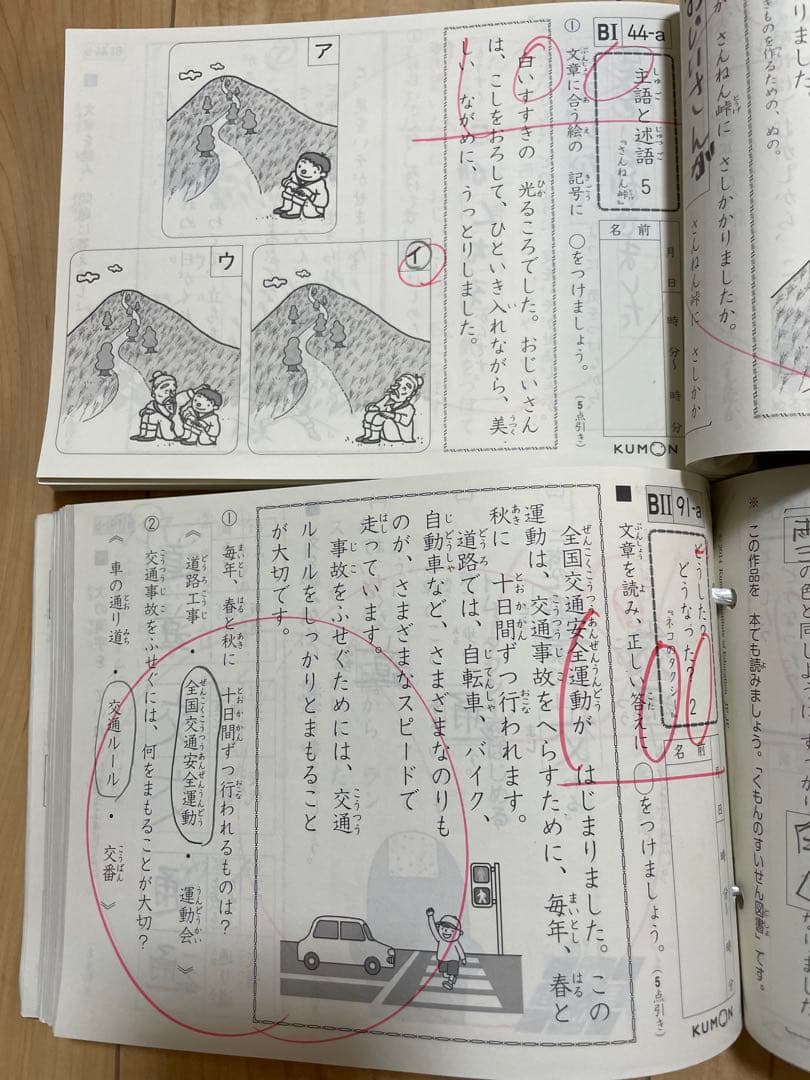 BI 44-a
主語と述語 5
『さんねん峠』
名前
月 日 時 分〜 時 分
KUMON
① 文章に合う絵の 記号に ○をつけましょう。
(5点引き)
白いすすきの 光るころでした。おじいさん
は、こしをおろして、ひといき入れながら、美
しい ながめに、うっとりしました。
ア
イ
ウ
きものを作るための、ぬの。
さんねん峠に さしかかりました。
さしかかりましたか。
さんねん峠に さしかか
BII 91-a
どうした?
どうなった? 2
『ネコのタクシー』
名前
日 時 分〜 時 分
KUMON
■ 文章を読み、正しい答えに ○をつけましょう。
(5点引き)
全国交通安全運動が はじまりました。この
運動は、交通事故をへらすために、毎年、春と
秋に 十日間ずつ行われます。
道路では、自転車、バイク、
自動車など、さまざまなのりも
のが、さまざまなスピードで
走っています。
事故をふせぐためには、交通
ルールをしっかりとまもること
が大切です。
① 毎年、春と秋に 十日間ずつ行われるものは?
《 道路工事 ・ 全国交通安全運動 ・ 運動会 》
② 交通事故をふせぐには、何をまもることが大切?
《 車の通り道 ・ 交通ルール ・ 交番 》
※ この作品を 本でも読みましょう。「くもんのすいせん図書」です。
の色と同じように